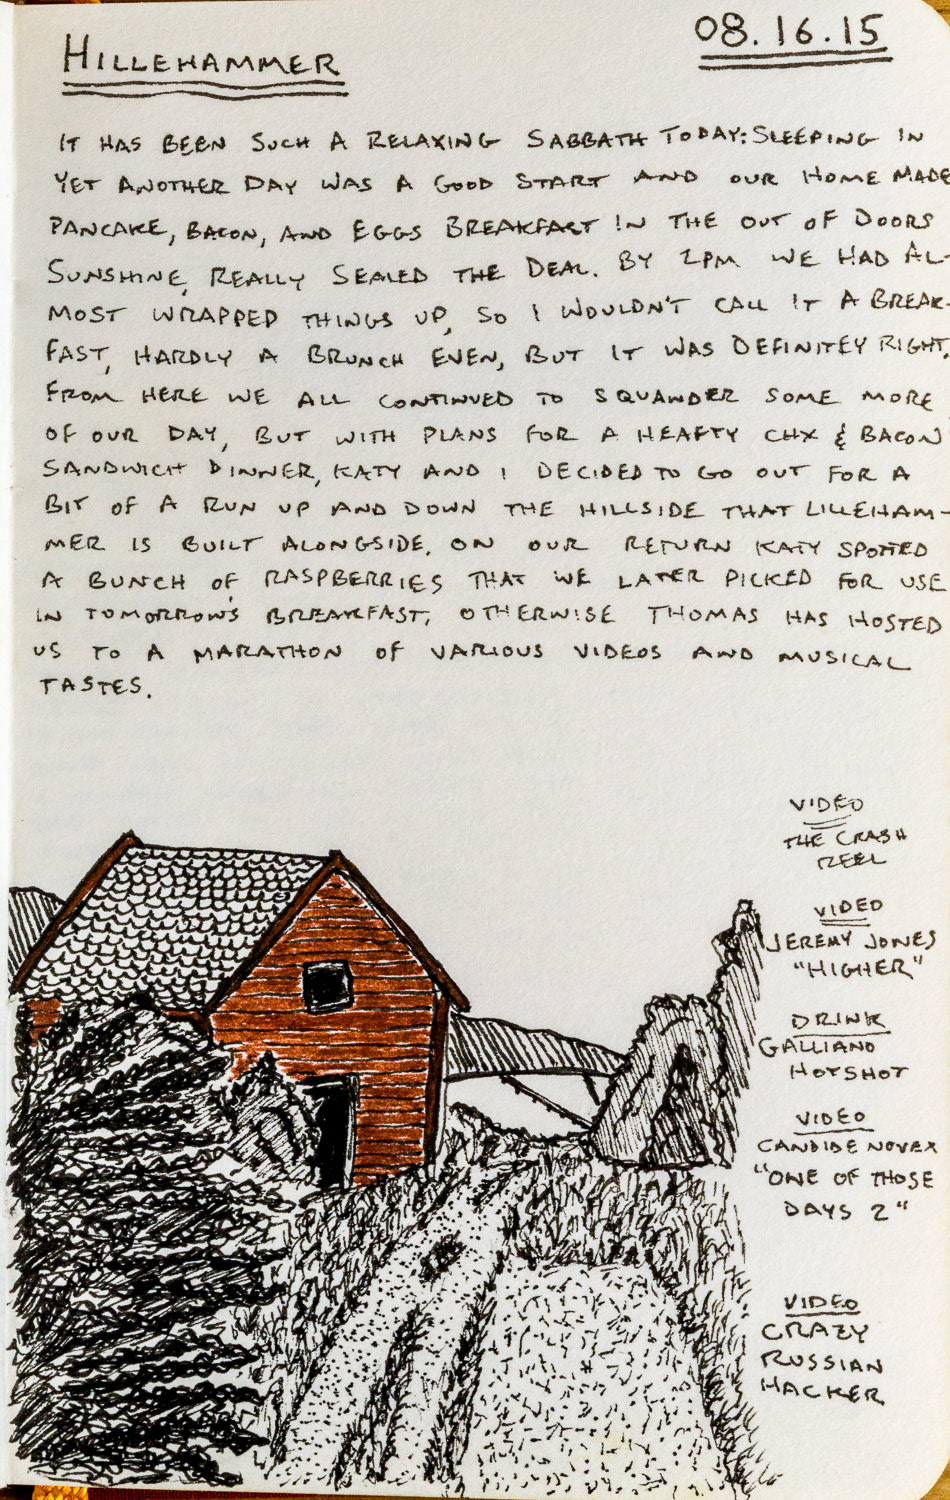 HILLEHAMMER
08.16.15
IT HAS BEEN SUCH A RELAXING SABBATH TODAY: SLEEPING IN
YET ANOTHER DAY WAS A GOOD START AND OUR HOME MADE
PANCAKE, BACON, AND EGGS BREAKFAST IN THE OUT OF DOORS
SUNSHINE, REALLY SEALED THE DEAL. BY 2PM WE HAD AL-
MOST WRAPPED THINGS UP, SO I WOULDN'T CALL IT A BREAK-
FAST, HARDLY A BRUNCH EVEN, BUT IT WAS DEFINITEY RIGHT.
FROM HERE WE ALL CONTINUED TO SQUANDER SOME MORE
OF OUR DAY, BUT WITH PLANS FOR A HEAFTY CHX & BACON
SANDWICH DINNER, KATY AND I DECIDED TO GO OUT FOR A
BIT OF A RUN UP AND DOWN THE HILLSIDE THAT LILLEHAM-
MER IS BUILT ALONGSIDE. ON OUR RETURN KATY SPOTTED
A BUNCH OF RASPBERRIES THAT WE LATER PICKED FOR USE
IN TOMORROW'S BREAKFAST. OTHERWISE THOMAS HAS HOSTED
US TO A MARATHON OF VARIOUS VIDEOS AND MUSICAL
TASTES.
VIDEO
THE CRASH
REEL
VIDEO
JEREMY JONES
"HIGHER"
DRINK
GALLIANO
HOTSHOT
VIDEO
CANDIDE NOVEX
"ONE OF THOSE
DAYS 2"
VIDEO
CRAZY
RUSSIAN
HACKER